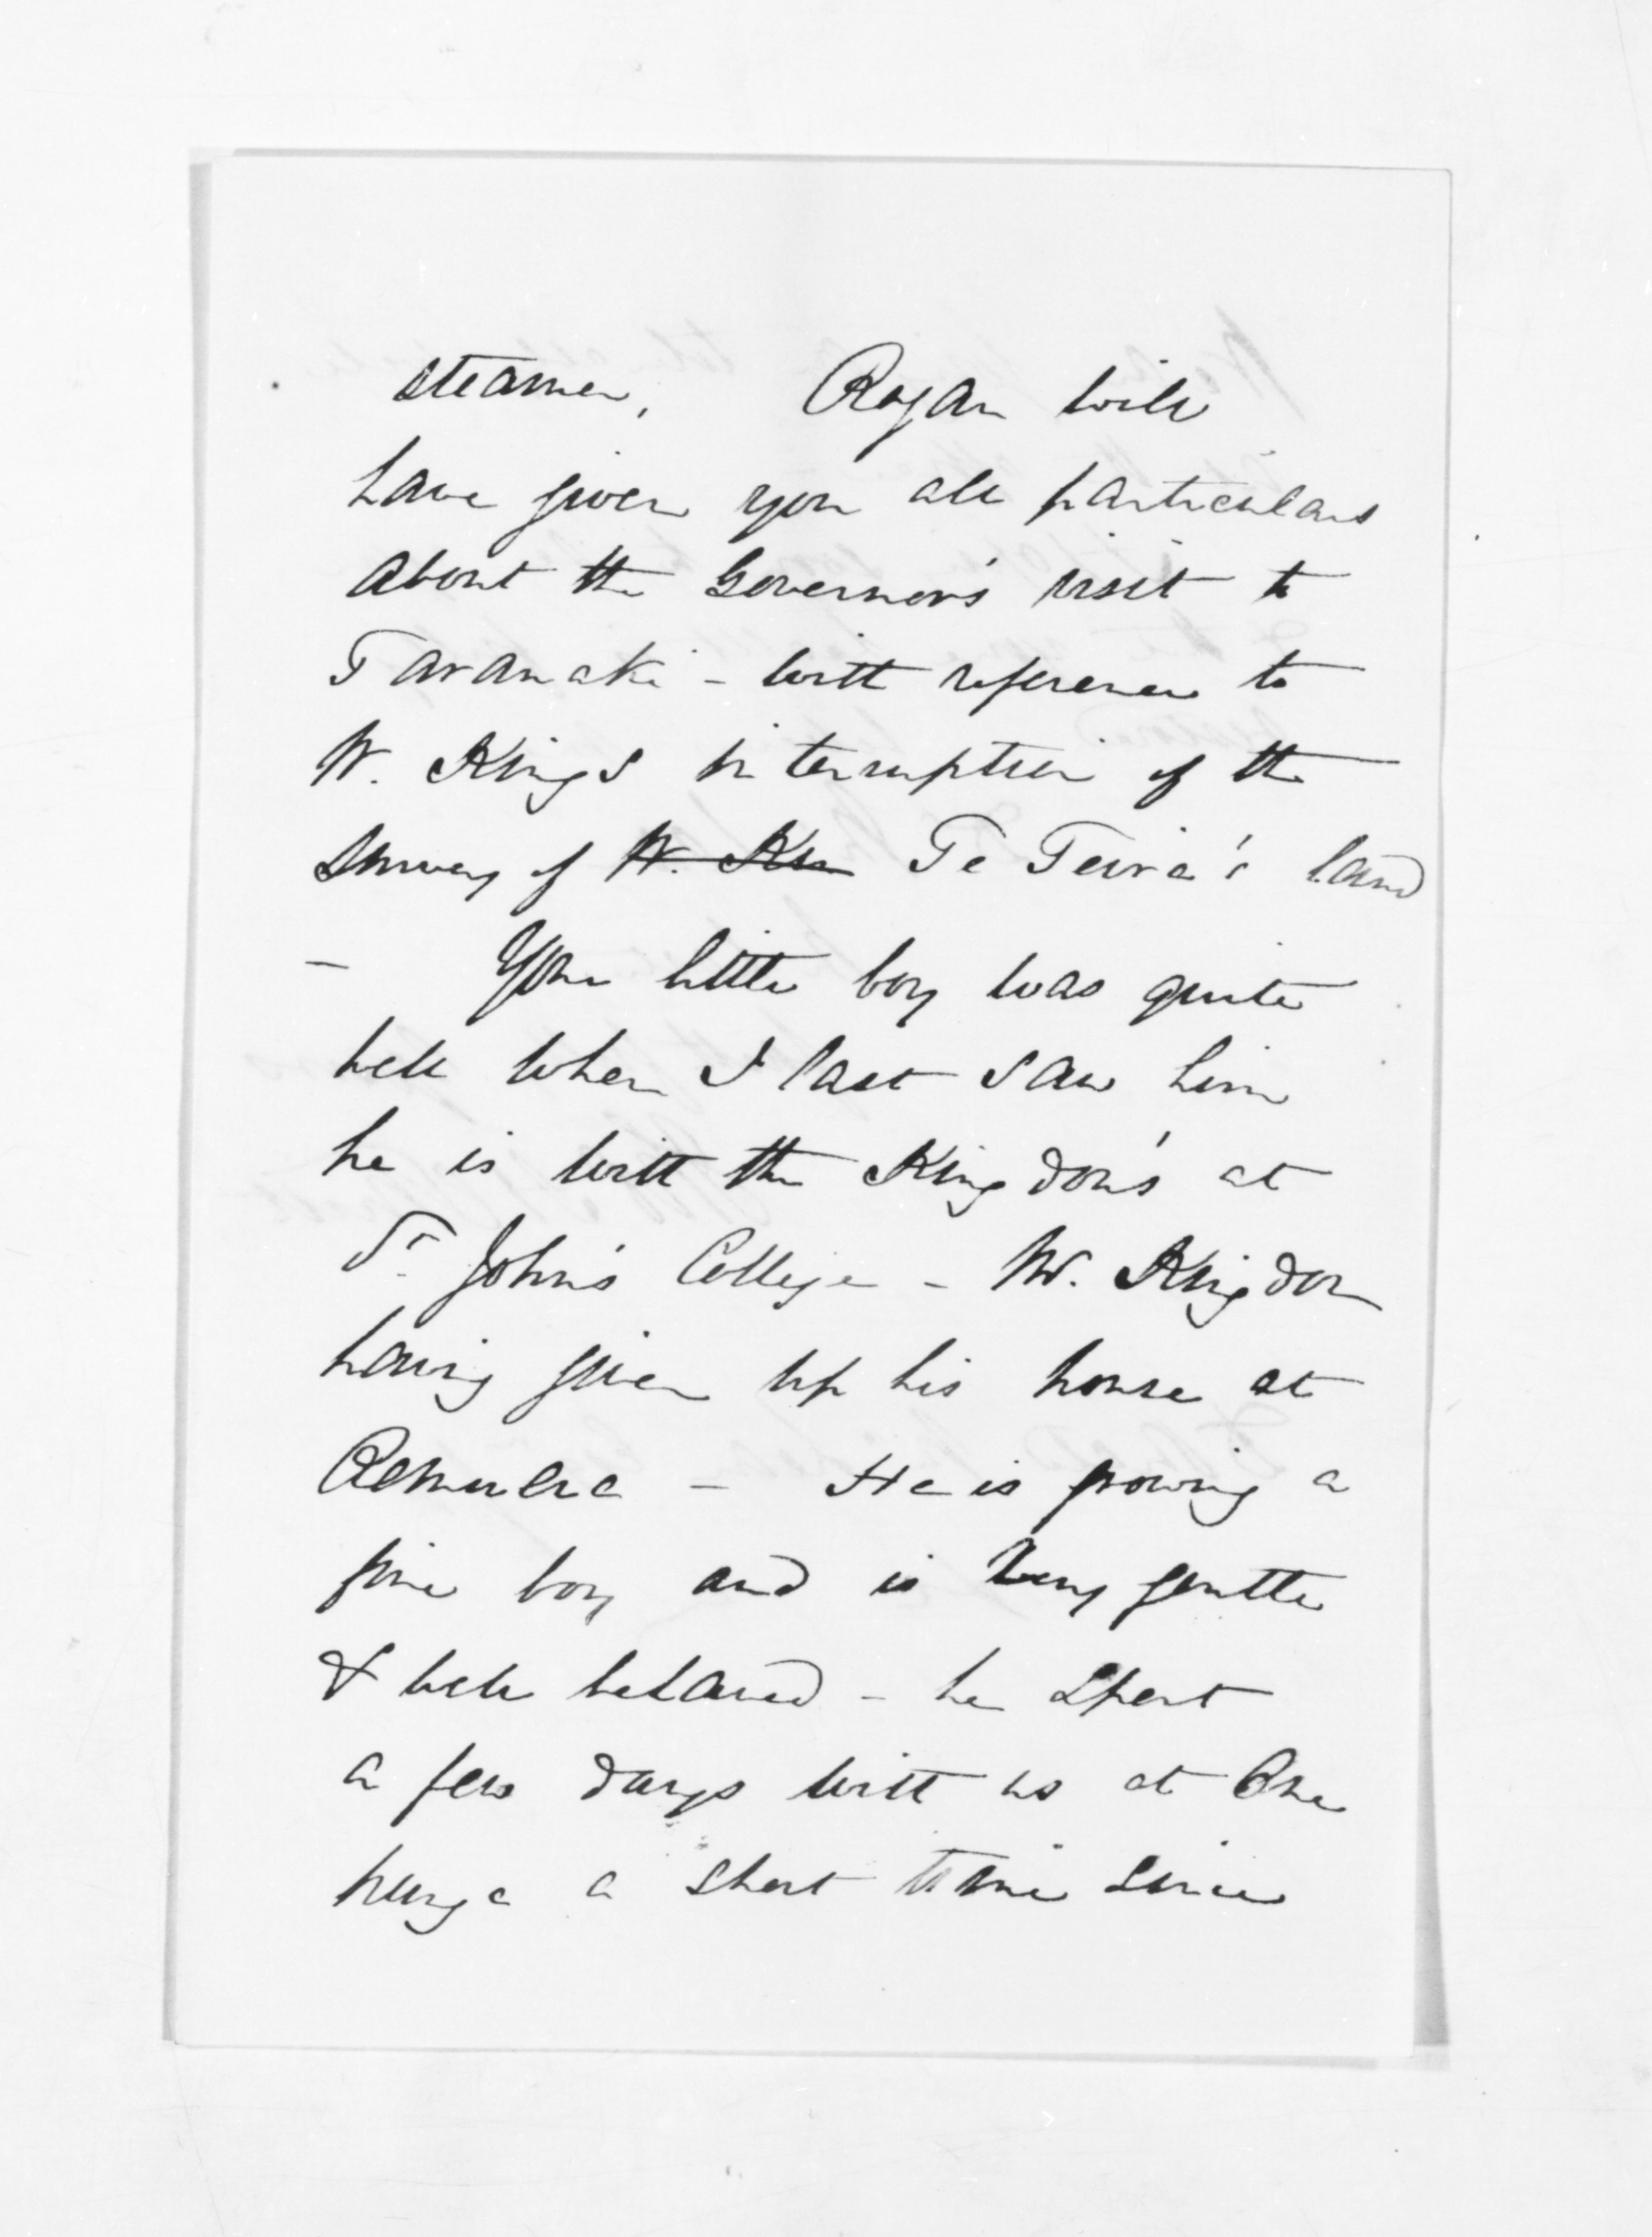 steamer. Rogan will
have given you all particulars
about the Governor's visit to
Taranaki - with reference to
W. Kings interruption of the
survey of W. Kin Te Teira's land
- Your little boy was quite
well when I last saw him
he is with the Kingdon's at
St. John's College - W. Kingdon
having given up his house at
Remuera - He is growing a
fine boy and is very gentle
& well behaved - he spent
a few days with us at One
hunga a short time since